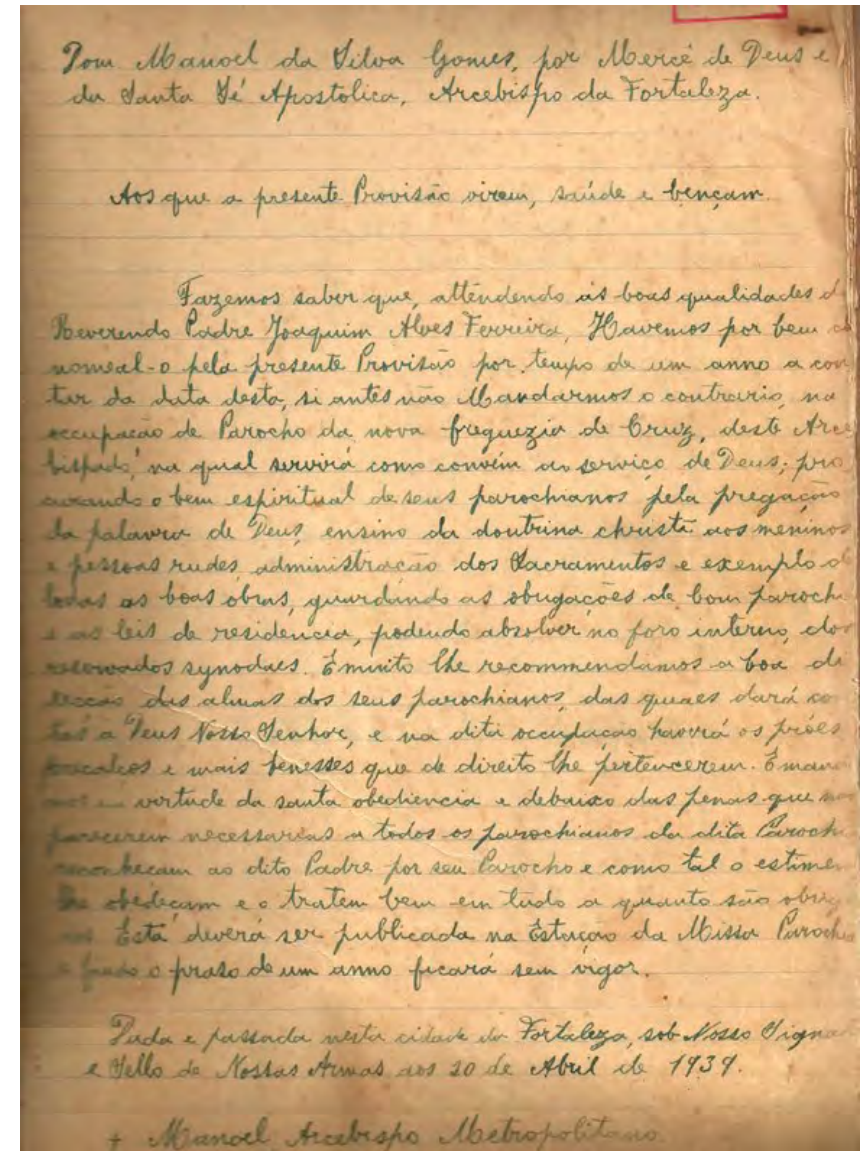 Dom Manoel da Silva Gomes, por Mercê de Deus e
da Santa Sé Apostolica, Arcebispo da Fortaleza.
Aos que a presente Provisão virem, saúde e bençam.
Fazemos saber que, attendendo ás boas qualidades d
Reverendo Padre Joaquim Alves Ferreira, Havemos por bem
nomeal-o pela presente Provisão por tempo de um anno a con
tar da data desta, si antes não Mandarmos o contrario, na
occupação de Parocho da nova freguezia de Cruz, deste Arce
bispado, na qual servirá como convém ao serviço de Deus; pro
curando o bem espiritual de seus parochianos pela pregação
da palavra de Deus, ensino da doutrina christã aos meninos
e pessoas rudes, administração dos Sacramentos e exemplo d
todas as boas obras, guardando as obrigações de bom paroch
e as leis de residencia, podendo absolver no foro interno, dos
reservados synodaes. E muito lhe recommendamos a boa di
recção das almas dos seus parochianos, das quaes dará co
tas a Deus Nosso Senhor, e na dita occupação haverá os próes
precalços e mais benesses que de direito lhe pertencerem. E man
em virtude da santa obediencia e debaixo das penas que nos
parecerem necessarias a todos os parochianos da dita Paroch
reconheçam ao dito Padre por seu Parocho e como tal o estimem
lhe obedeçam e o tratem bem em tudo a quanto são obriga
Esta deverá ser publicada na Estação da Missa Parochi
e findo o praso de um anno ficará sem vigor.
Dada e passada nesta cidade da Fortaleza, sob Nosso Signa
e Sello de Nossas Armas aos de Abril de 1939.
+ Manoel Arcebispo Metropolitano.